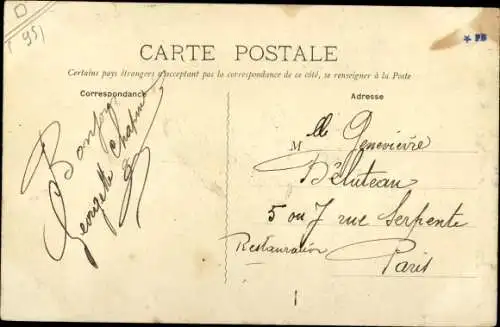 D
95
CARTE POSTALE
Certains pays étrangers n'acceptant pas la correspondance de ce côté, se renseigner à la Poste
Correspondance
Adresse
Georgette
M lle Genevievre
Béluteau
5 ou 7 rue Serpente
Restauration
Paris